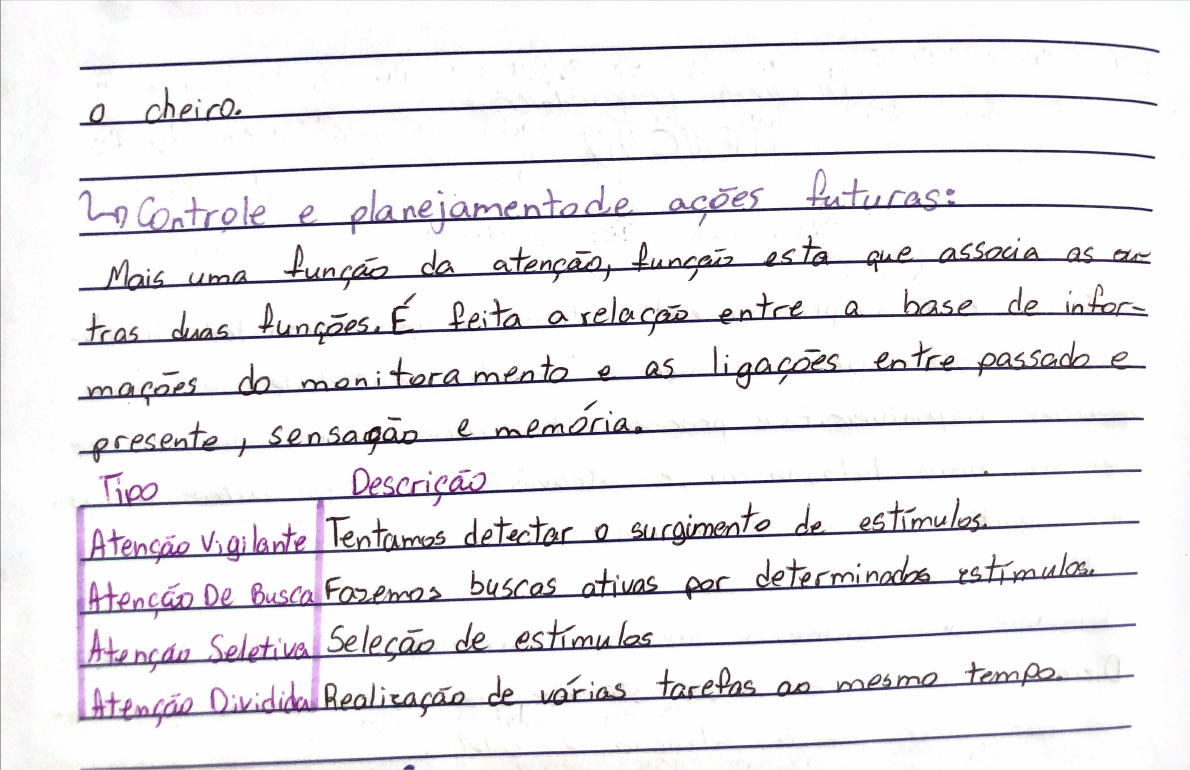 o cheiro.
↳ Controle e planejamento de ações futuras:
Mais uma função da atenção, função esta que associa as ou-
tras duas funções. É feita a relação entre a base de infor-
mações do monitoramento e as ligações entre passado e
presente, sensação e memória.
Tipo Descrição
Atenção Vigilante Tentamos detectar o surgimento de estímulos.
Atenção De Busca Fazemos buscas ativas por determinados estímulos.
Atenção Seletiva Seleção de estímulos
Atenção Dividida Realização de várias tarefas ao mesmo tempo.